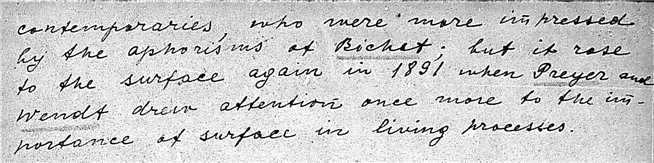 contemporaries, who were more impressed
by the aphorisms of Bichat; but it rose
to the surface again in 1891 when Preyer and
Wendt drew attention once more to the im-
portance of surface in living processes.